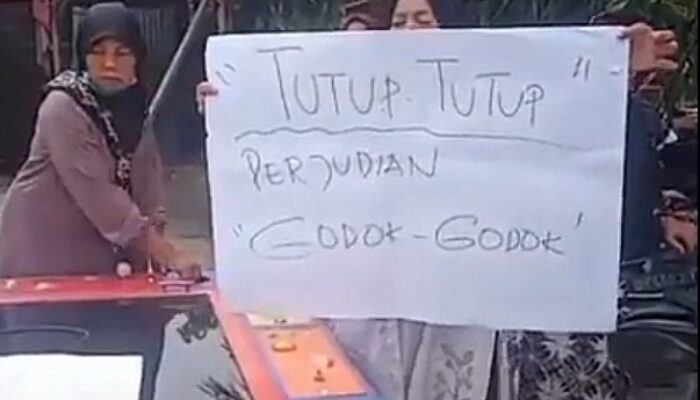 "TUTUP. TUTUP"
PERJUDIAN
"GODOK-GODOK"